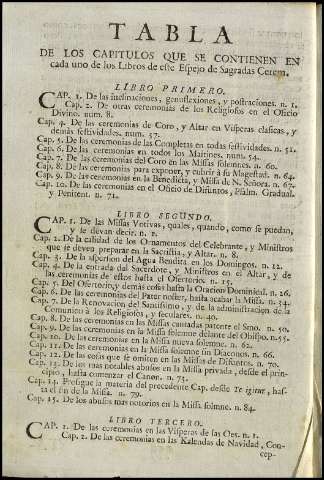 TABLA
DE LOS CAPITULOS QUE SE CONTIENEN EN
cada uno de los Libros de este Espejo de Sagradas Cerem.
LIBRO PRIMERO.
CAP. 1. De las inclinaciones, genuflexiones, y postraciones. n. 1.
Cap. 2. De otras ceremonias de los Religiosos en el Oficio
Divino. num. 8.
Cap. 4. De las ceremonias de Coro, y Altar en Visperas clasicas, y
demàs festividades. num. 37.
Cap. 5. De las ceremonias de las Completas en todas festividades. n. 51.
Cap. 6. De las ceremonias en todos los Maitines. num. 54.
Cap. 7. De las ceremonias del Coro en las Missas solemnes. n. 60.
Cap. 8. De las ceremonias para exponer, y cubrir à su Magestad. n. 64.
Cap. 9. De las ceremonias en la Benedicta, y Missa de N. Señora. n. 67.
Cap. 10. De las ceremonias en el Oficio de Difuntos, Psalm. Gradual.
y Penitent. n. 71.
LIBRO SEGUNDO.
CAP. 1. De las Missas Votivas, quales, quando, como se puedan,
y se devan decir. n. 1.
Cap. 2. De la calidad de los Ornamentos del Celebrante, y Ministros
que se deven preparar en la Sacristia, y Altar. n. 8.
Cap. 3. De la aspersion del Agua Bendita en los Domingos. n. 12.
Cap. 4. De la entrada del Sacerdote, y Ministros en el Altar, y de
las ceremonias de estos hasta el Ofertorio. n. 15.
Cap. 5. Del Ofertorio, y demàs cosas hasta la Oracion Dominical. n. 26.
Cap. 6. De las ceremonias del Pater noster, hasta acabar la Missa. n. 34.
Cap. 7. De la Renovacion del Santissimo, y de la administracion de la
Comunion à los Religiosos, y seculares. n. 40.
Cap. 8. De las ceremonias en las Missas cantadas patente el Smo. n. 50.
Cap. 9. De las ceremonias en la Missa solemne delante del Obispo. n. 55.
Cap. 10. De las ceremonias en la Missa nueva solemne. n. 62.
Cap. 11. De las ceremonias en la Missa solemne sin Diaconos. n. 66.
Cap. 12. De las cosas que se omiten en las Missas de Difuntos. n. 70.
Cap. 13. De los mas notables abusos en la Missa privada, desde el principio,
hasta comenzar el Canon. n. 73.
Cap. 14. Prosigue la materia del precedente Cap. desde Te igitur, hasta
el fin de la Missa. n. 79.
Cap. 15. De los abusos mas notorios en la Missa solemne. n. 84.
LIBRO TERCERO.
CAP. 1. De las ceremonias en las Visperas de las Oes. n. 1.
Cap. 2. De las ceremonias en las Kalendas de Navidad, Con-
cep-